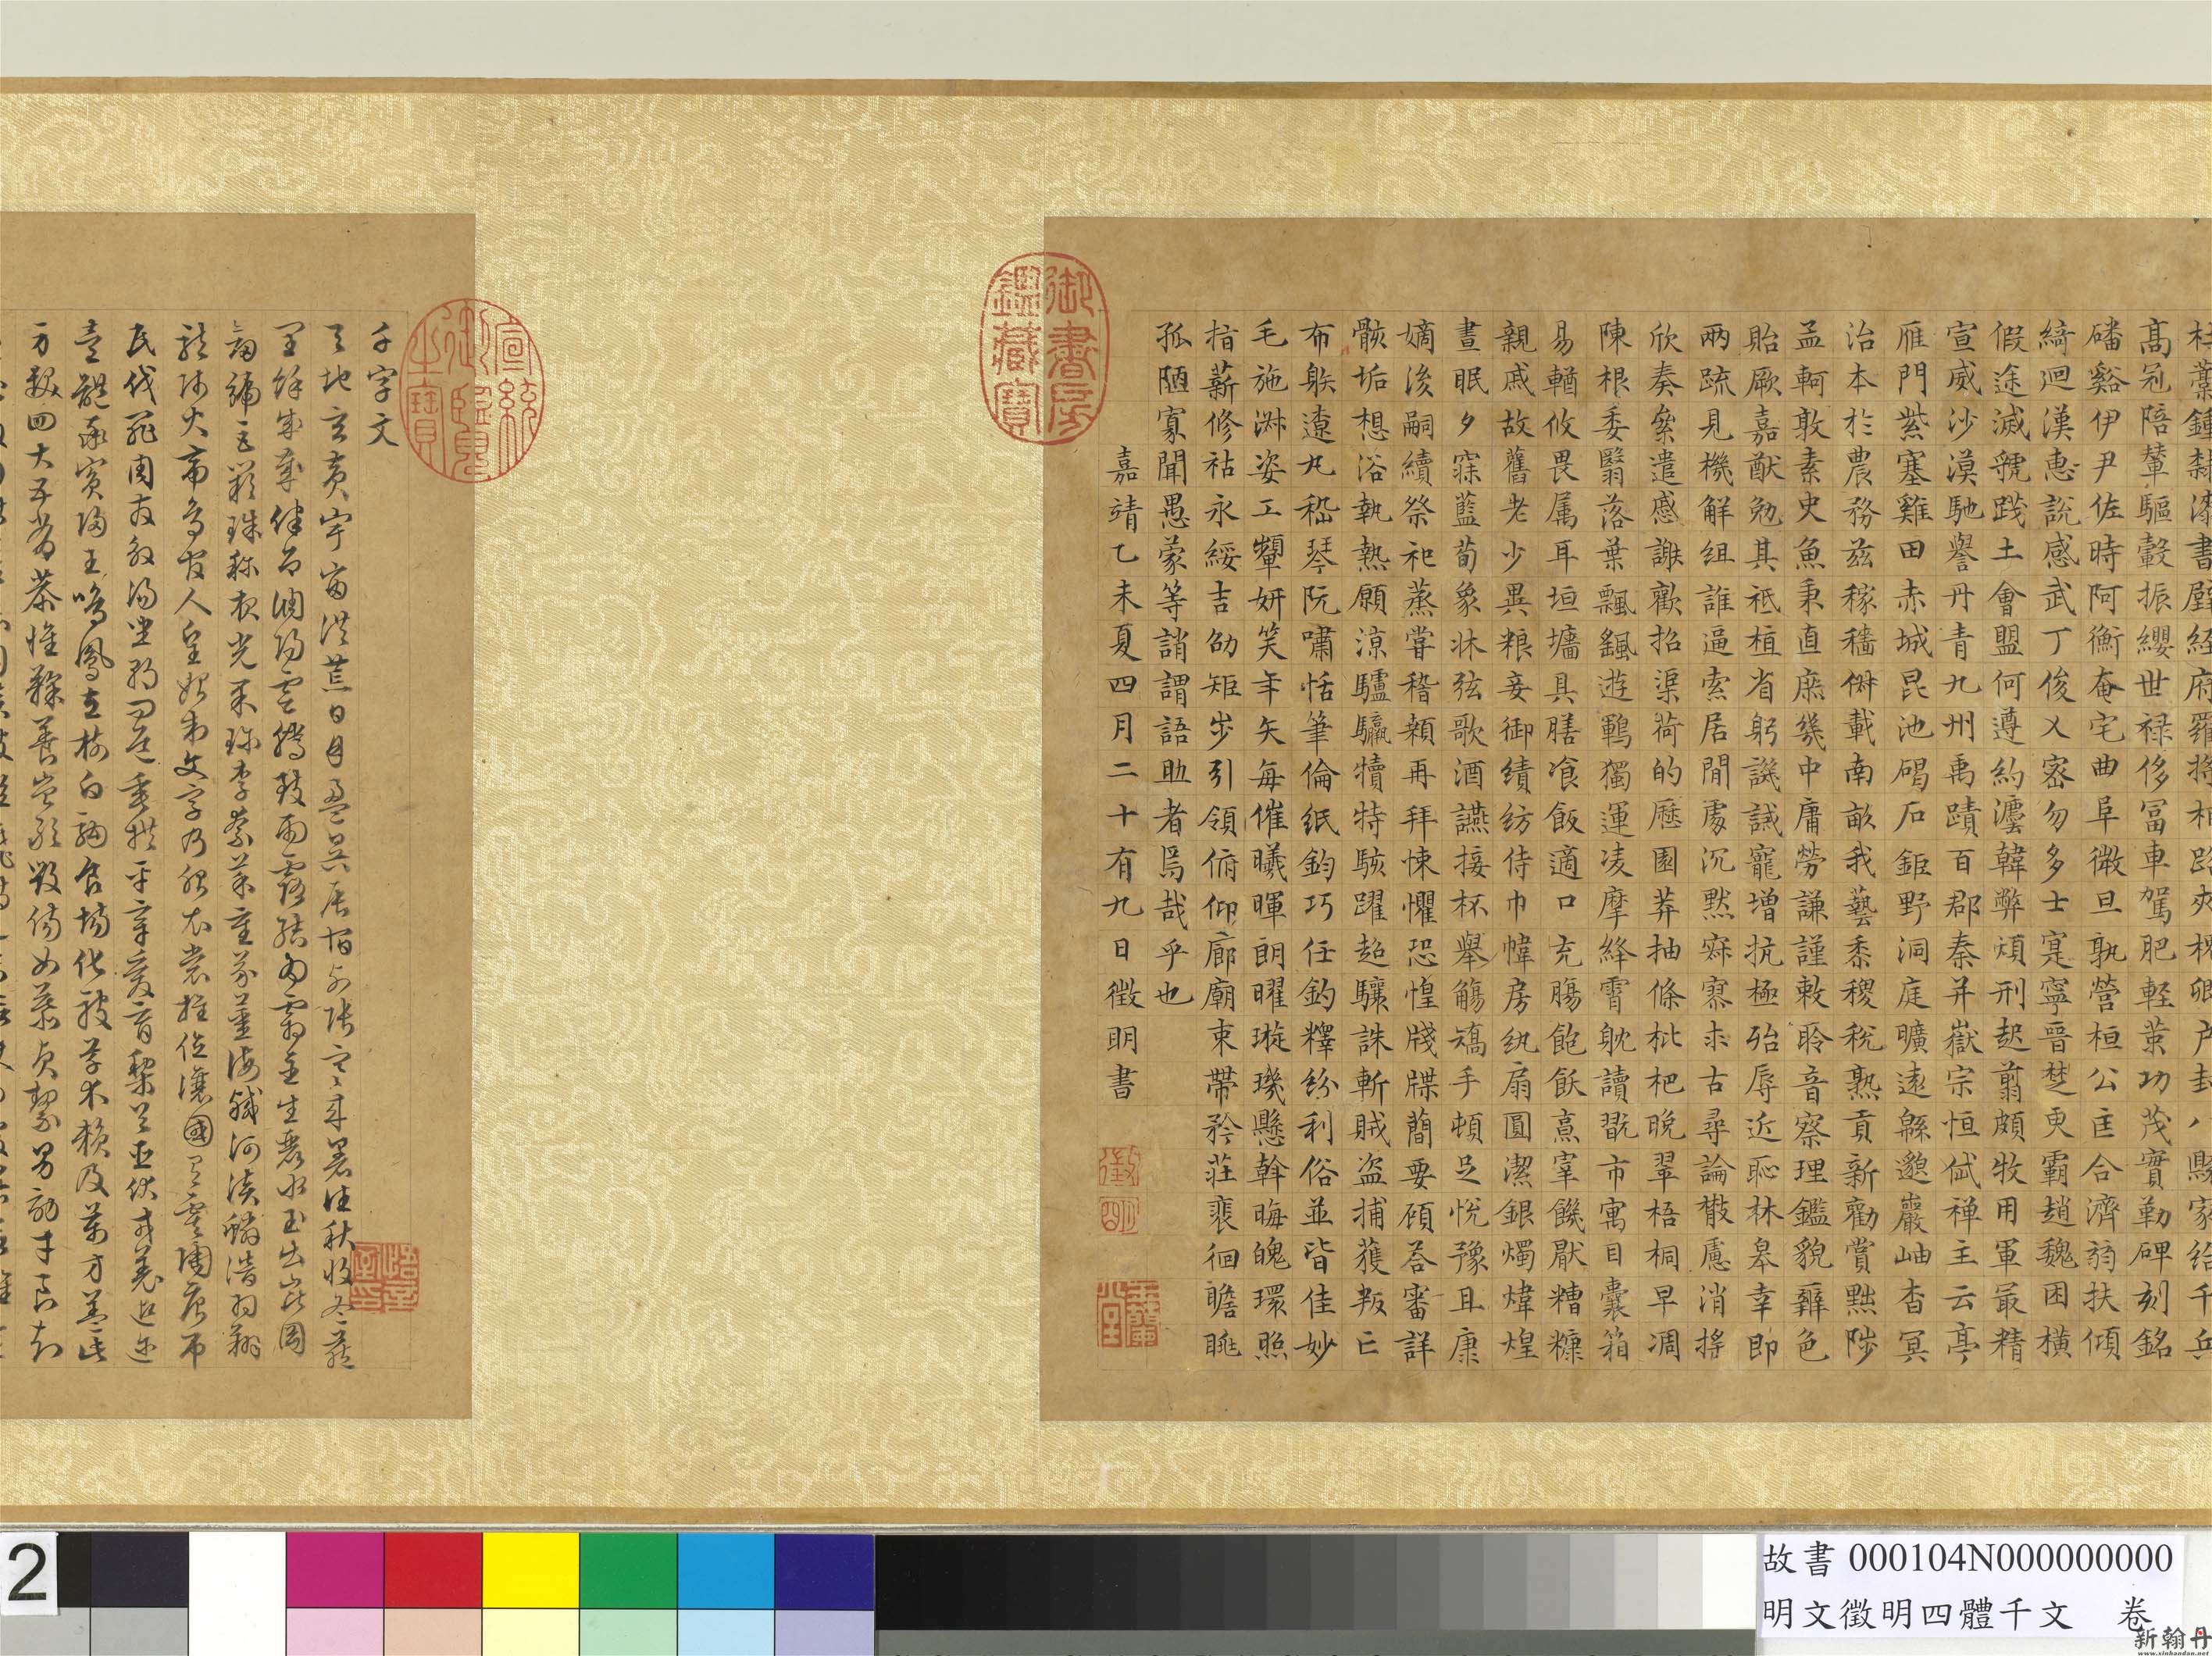 杜稾鍾隸漆書壁經府羅將相路夾槐卿户封八縣家給千兵
高冠陪輦驅轂振纓世禄侈冨車駕肥輕策功茂實勒碑刻銘
磻谿伊尹佐時阿衡奄宅曲阜微旦孰營桓公匡合濟弱扶傾
綺迴漢惠說感武丁俊乂密勿多士寔寧晉楚更霸趙魏困橫
假途滅虢踐土會盟何遵約灋韓弊煩刑起翦頗牧用軍最精
宣威沙漠馳譽丹青九州禹蹟百郡秦并嶽宗恒岱禪主云亭
雁門紫塞雞田赤城昆池碣石鉅野洞庭曠遠緜邈巖岫杳冥
治本於農務兹稼穡俶載南畝我藝黍稷稅熟貢新勸賞黜陟
孟軻敦素史魚秉直庶幾中庸勞謙謹敕聆音察理鑑貌辯色
貽厥嘉猷勉其祗植省躬譏誡寵增抗極殆辱近恥林皋幸即
兩疏見機解組誰逼索居閒處沉默寂寥求古尋論散慮消搖
欣奏累遣慼謝歡招渠荷的歷園莽抽條枇杷晚翠梧桐早凋
陳根委翳落葉飄飖遊鵾獨運凌摩絳霄耽讀翫市寓目囊箱
易輶攸畏属耳垣墻具膳飡飯適口充腸飽飫烹宰饑厭糟糠
親戚故舊老少異粮妾御績紡侍巾幃房紈扇圓潔銀燭煒煌
晝眠夕寐藍荀象牀弦歌酒讌接杯舉觴矯手頓足悅豫且康
嫡後嗣續祭祀蒸嘗稽顙再拜悚懼恐惶牋牒簡要顧荅審詳
骸垢想浴執熱願涼驢騾犢特駭躍超驤誅斬賊盗捕獲叛亡
布躲遼丸嵇琴阮嘯恬筆倫紙鈞巧任釣釋紛利俗並皆佳妙
毛施淑姿工顰妍笑年矢每催曦暉朗曜璇璣懸斡晦魄環照
指薪修祜永綏吉劭矩步引領俯仰廊廟束帶矜莊裴徊瞻眺
孤陋寡聞愚蒙等誚謂語助者焉哉乎也
嘉靖乙未夏四月二十有九日徵明書
徵明
玉蘭堂
御書房鑑藏寶
宣統御覽之寶
千字文
天地玄黃宇宙洪荒日月盈昃辰宿列張寒來暑往秋收冬藏
閏餘成歲律吕調陽雲騰致雨露結為霜金生麗水玉出崑岡
劍號巨闕珠稱夜光果珍李柰菜重芥薑海鹹河淡鱗潛羽翔
龍師火帝鳥官人皇始制文字乃服衣裳推位讓國有虞陶唐弔
民伐罪周發殷湯坐朝問道垂拱平章愛育黎首臣伏戎羌遐邇
壹體率賓歸王鳴鳳在樹白駒食場化被草木賴及萬方蓋此
身髮四大五常恭惟鞠養豈敢毀傷女慕貞絜男效才良知
2
故書 000104N000000000
明文徵明四體千文 卷
新翰丹
www.xinhandan.net